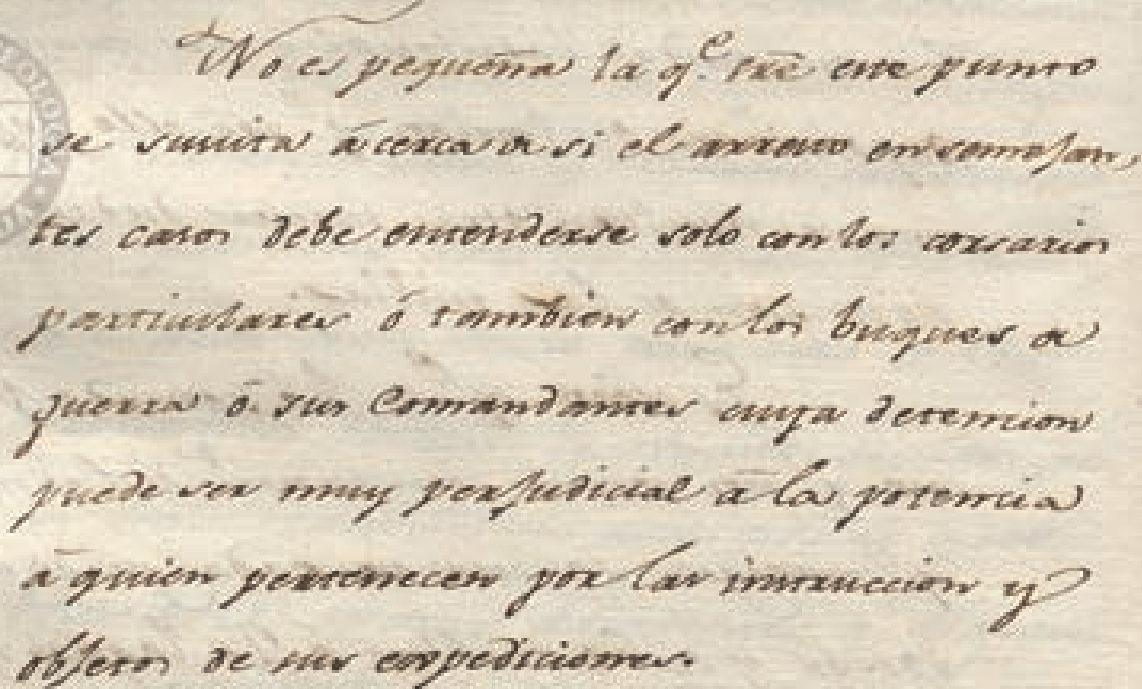 No es pequeña la q.e sre este punto
se sucita á cerca de si el arresto en semejan-
tes casos debe entenderse solo con los corsarios
particulares ó tambien con los buques de
guerra ó sus Comandantes cuya detencion
puede ser muy perjudicial á la potencia
á quien pertenecen por las instruccion y
objetos de sus expediciones.